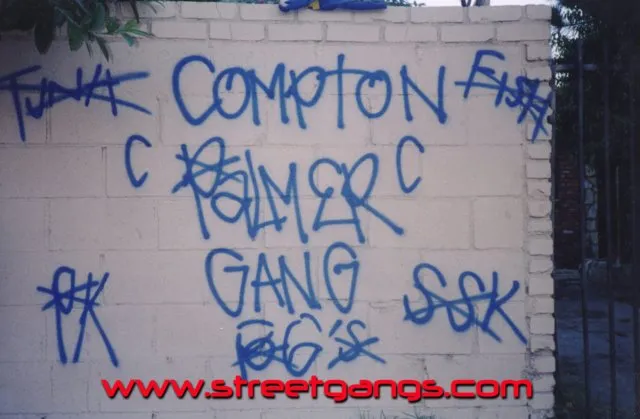 TUNA COMPTON FISH
C PALMER C
GANG
PK SSK
OG'S
www.streetgangs.com